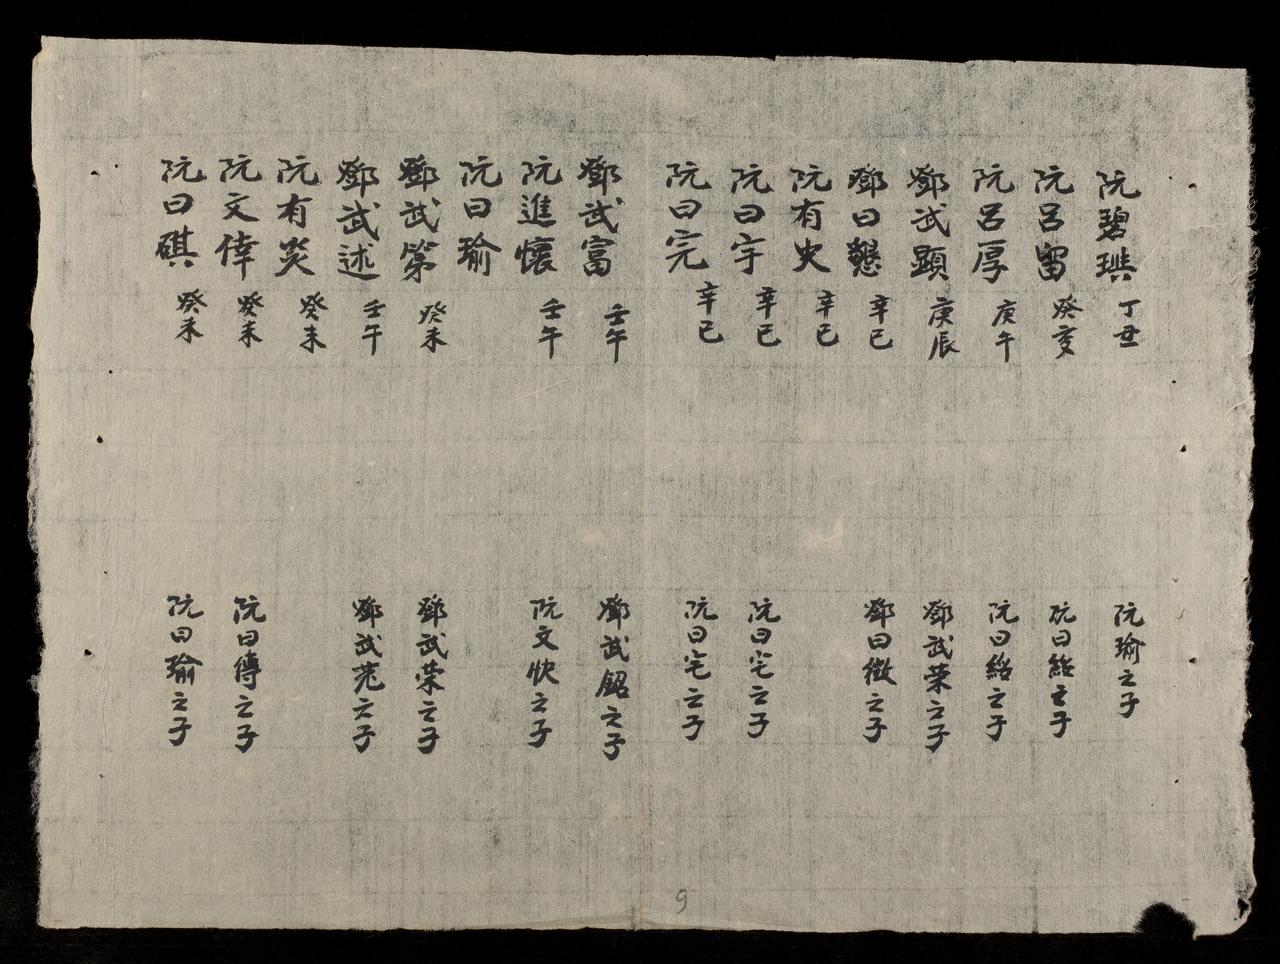 阮碧琪 丁丑 阮瑜之子
阮呂留 癸亥 阮曰紹之子
阮呂厚 庚午 阮曰紹之子
鄧武顕 庚辰 鄧武荣之子
鄧曰懇 辛巳 鄧曰徵之子
阮有史 辛巳
阮曰宇 辛巳 阮曰宅之子
阮曰完 辛巳 阮曰宅之子
鄧武富 壬午 鄧武鋁之子
阮進懷 壬午 阮文快之子
阮曰瑜
鄧武第 癸未 鄧武荣之子
鄧武述 壬午 鄧武之子
阮有炎 癸未
阮文偉 癸未 阮曰傳之子
阮曰碤 癸未 阮曰瑜之子
9